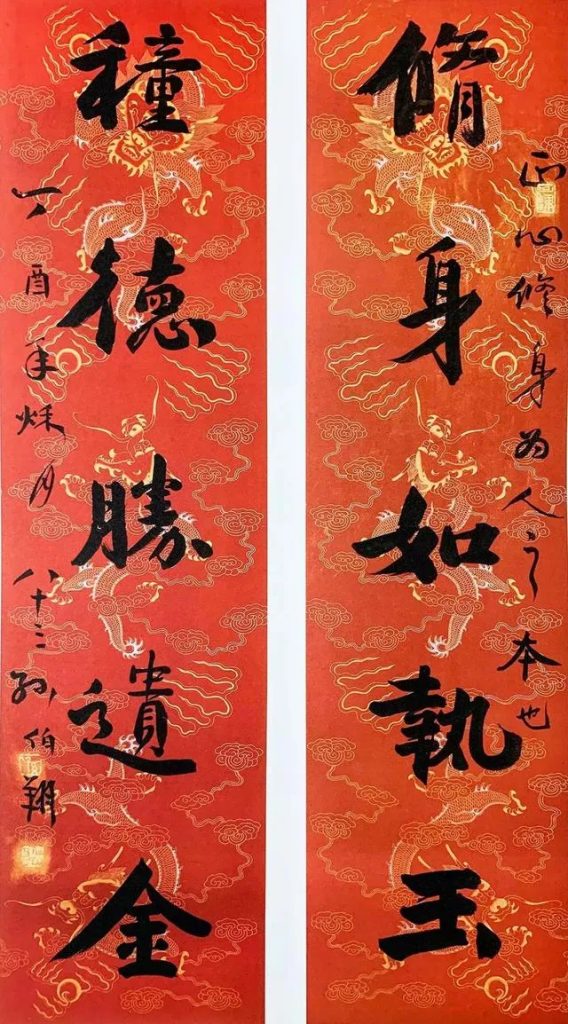 脩身如執玉
正心修身为人之本也
種德勝遺金
丁酉年秌月
八十三孙伯翔